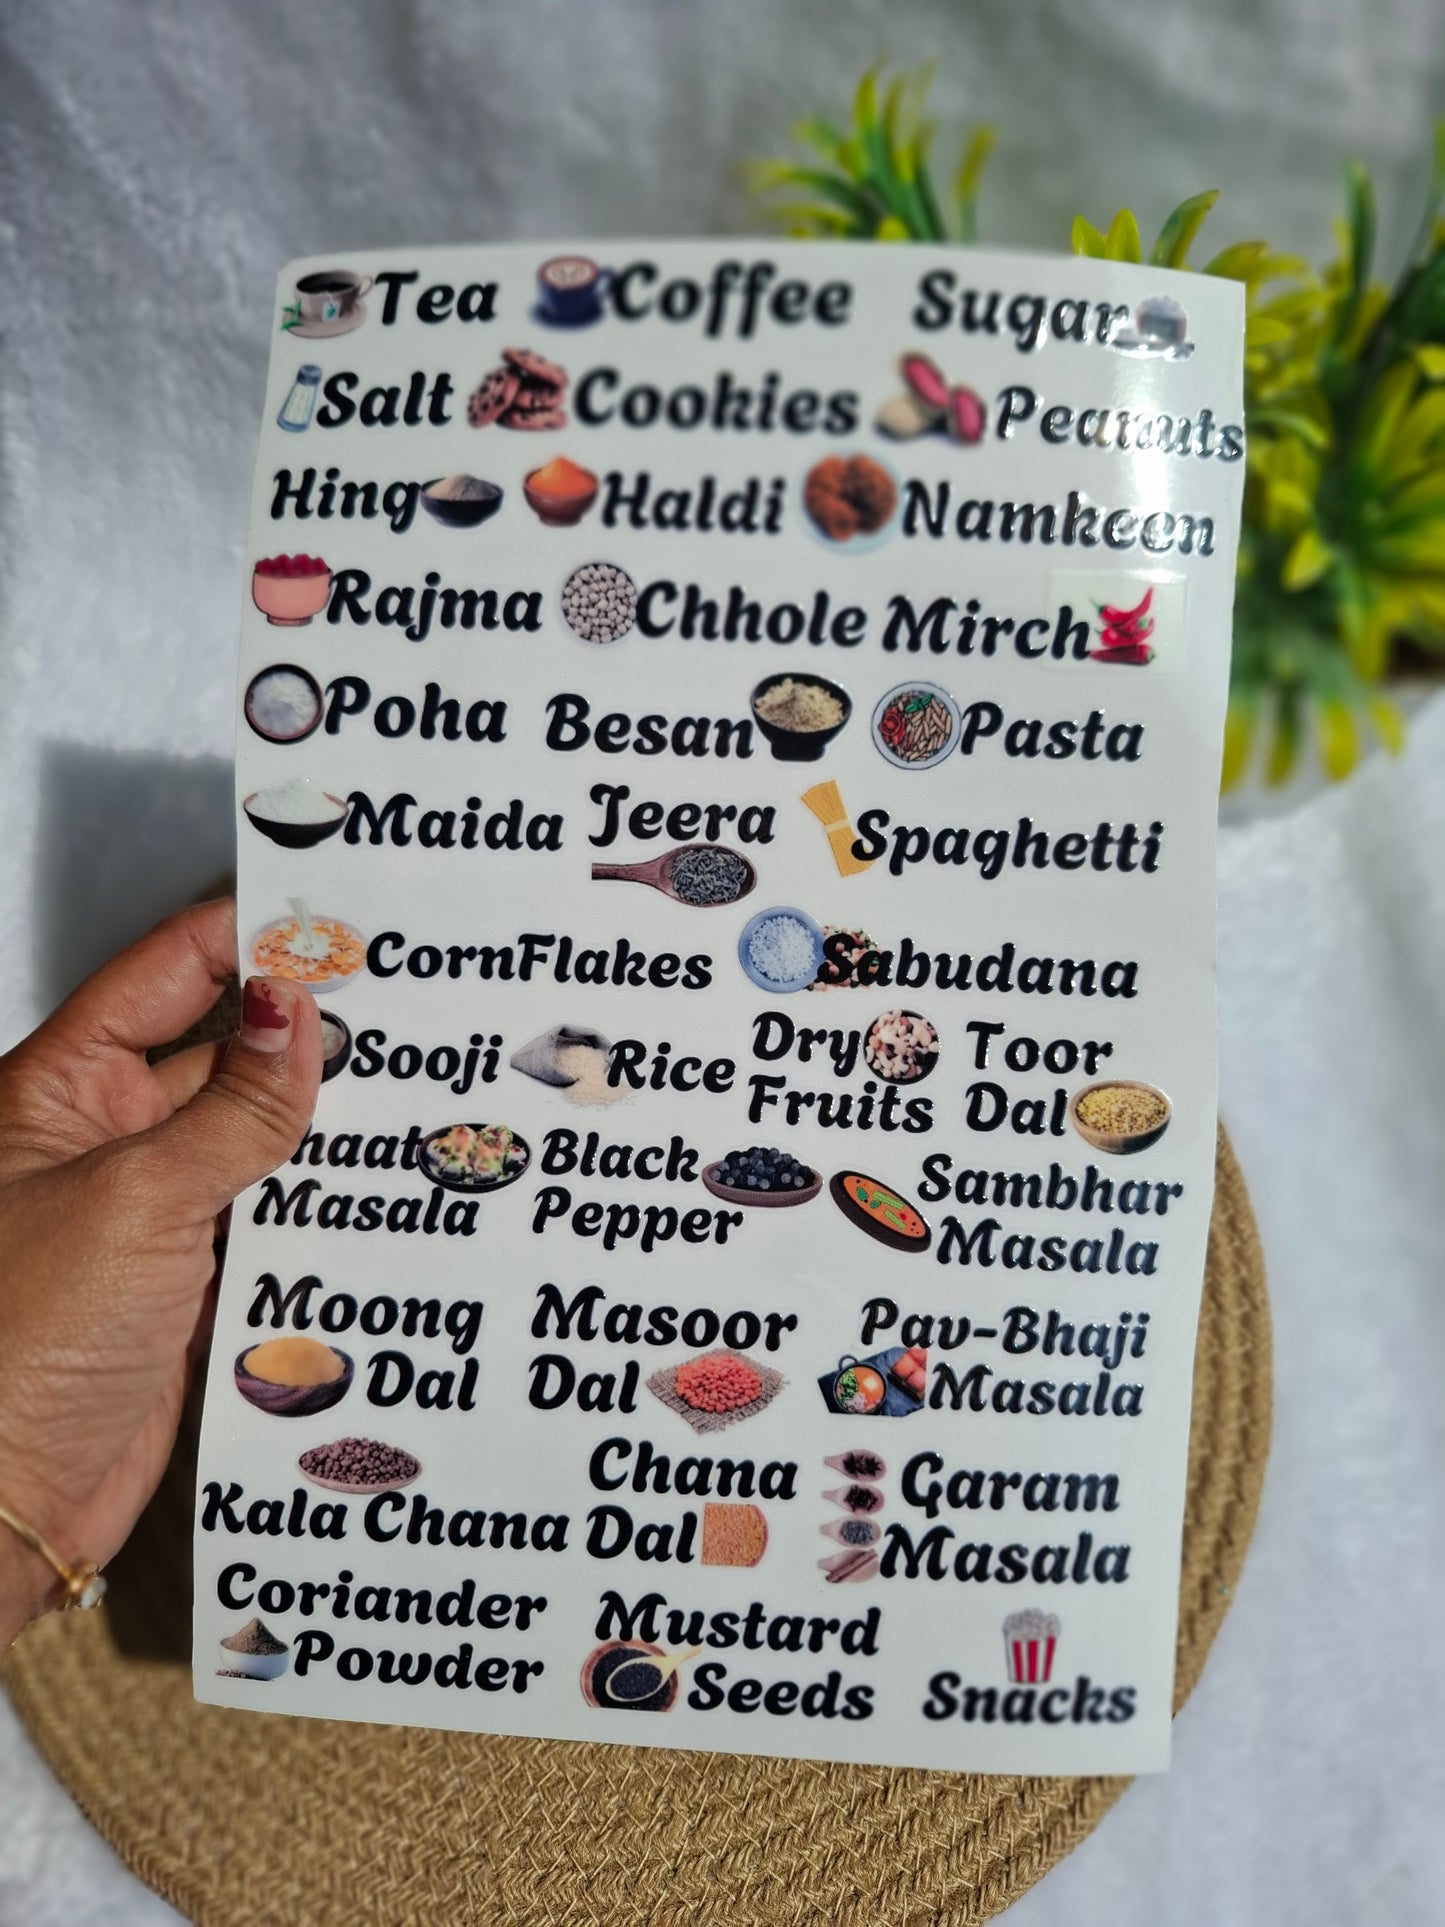 Tea Coffee Sugar
Salt Cookies Peanuts
Hing Haldi Namkeen
Rajma Chhole Mirch
Poha Besan Pasta
Maida Jeera Spaghetti
CornFlakes Sabudana
Sooji Rice Dry Fruits Toor Dal
haat Masala Black Pepper Sambhar Masala
Moong Dal Masoor Dal Pav-Bhaji Masala
Kala Chana Chana Dal Garam Masala
Coriander Powder Mustard Seeds Snacks